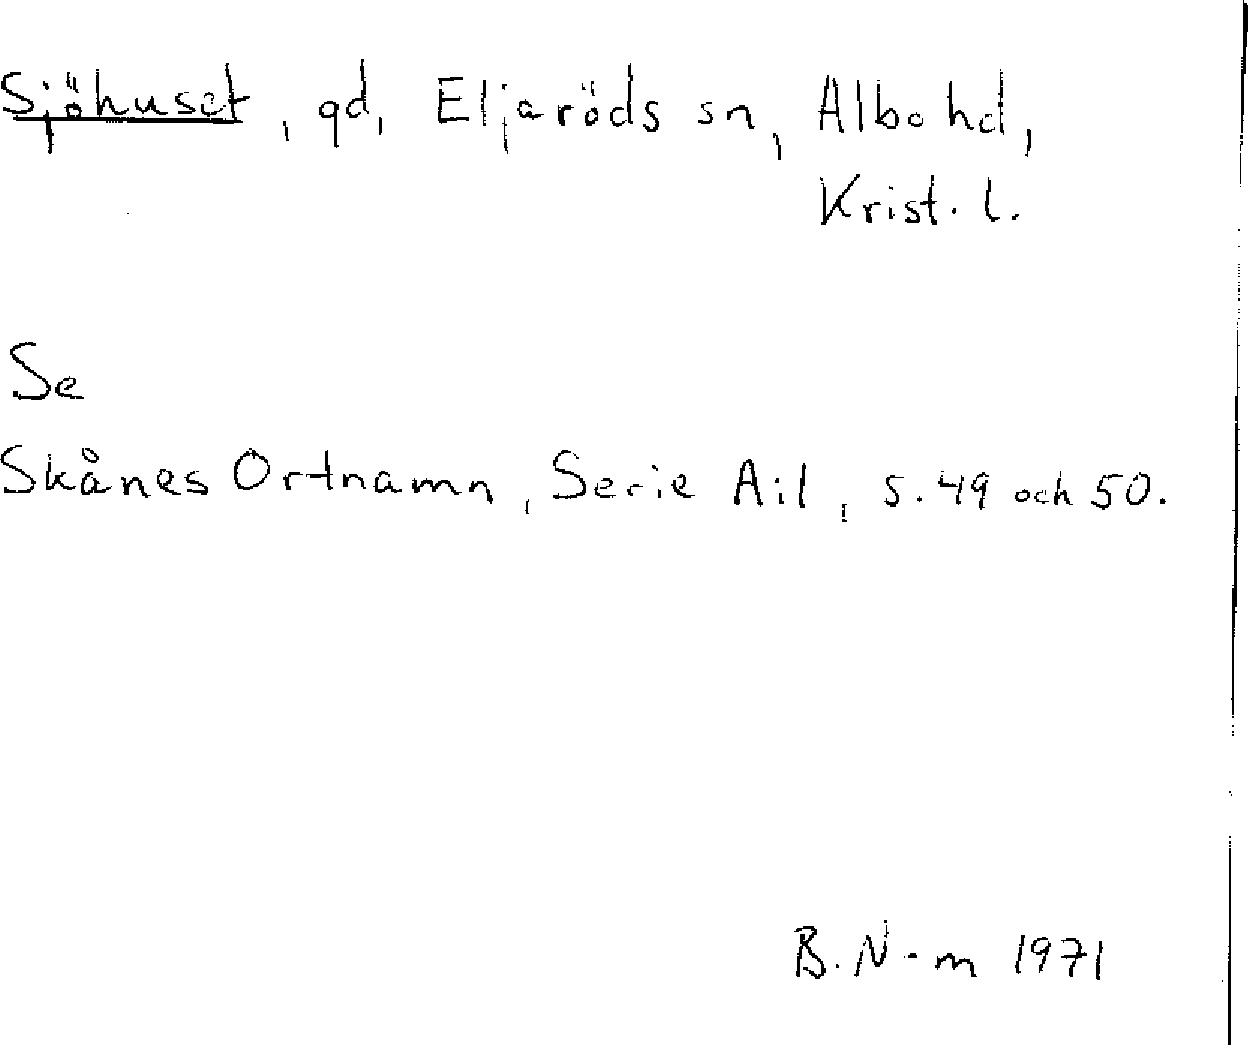 Sjöhuset, gd, Eljaröds sn, Albo hd,
Krist. l.
Se
Skånes Ortnamn, Serie A:1, s. 49 och 50.
B. N-m 1971